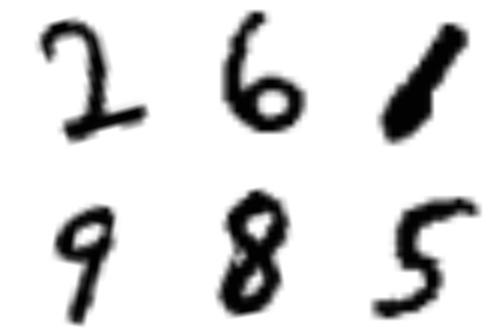 2 6 1
9 8 5